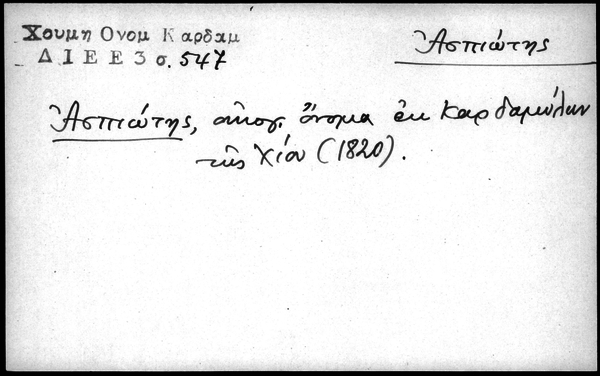 Χουμη Ονομ Καρδαμ
ΔΙΕΕ 3 σ. 547
Ἀσπιώτης
Ἀσπιώτης, οἰκογ. ὄνομα ἐκ Καρδαμύλων
τῆς Χίου (1820).